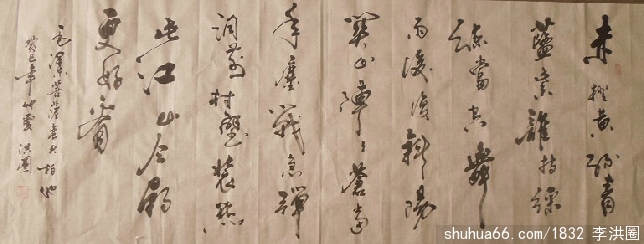 赤橙黄绿青
蓝紫谁持彩
练当空舞
雨后复斜阳
关山阵々苍当
年鏖战急弹
洞前村壁装点
此江山今朝
更好看
毛泽东菩萨蛮大柏地
癸巳年 洪圈
shuhua66.com/1832 李洪圈